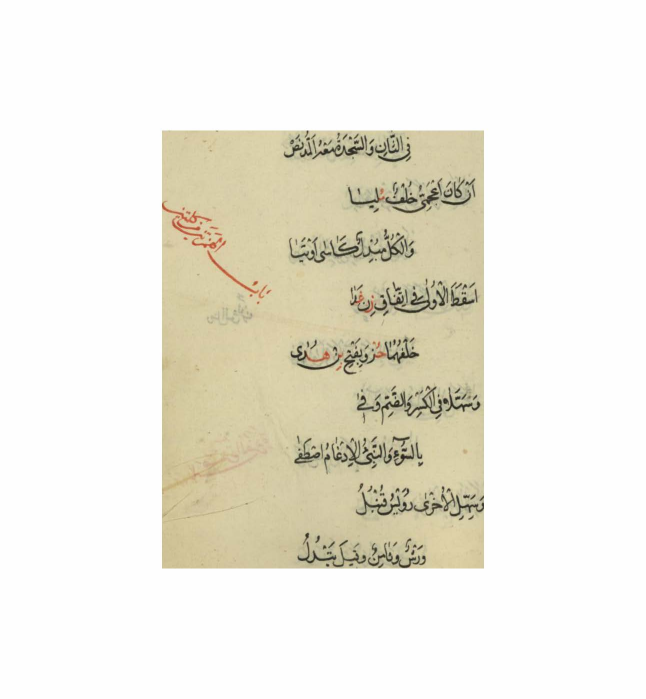 فِي الثَّانِ وَالسَّجْدَةُ مَعْهُ الْمَدُّ نَصّْ
أَنْ كَانَ أَعْجَمِيُّ خُلْفٌ مُلِيَا
وَالْكُلُّ مُبْدِلٌ كَآسَى أُوتِيَا
بَابُ الهمزتين من كلمتين
اَسْقَطَ الْاُولَى فِي اتِّفَاقٍ زِنْ غَدَا
خُلْفُهُمَا حُزْ وَبِفَتْحٍ بِنْ هُدَى
وَسَهَّلَا فِي الْكَسْرِ وَالضَّمِّ وَفِي
بِالسُّوءِ وَالنَّبِيءِ الْاِدْغَامُ اصْطُفِي
وَسَهَّلَ الْاُخْرَى رُوَيْسٌ قُنْبُلُ
وَرْشٌ وَثَامِنٌ وَقِيلَ تُبْدَلُ